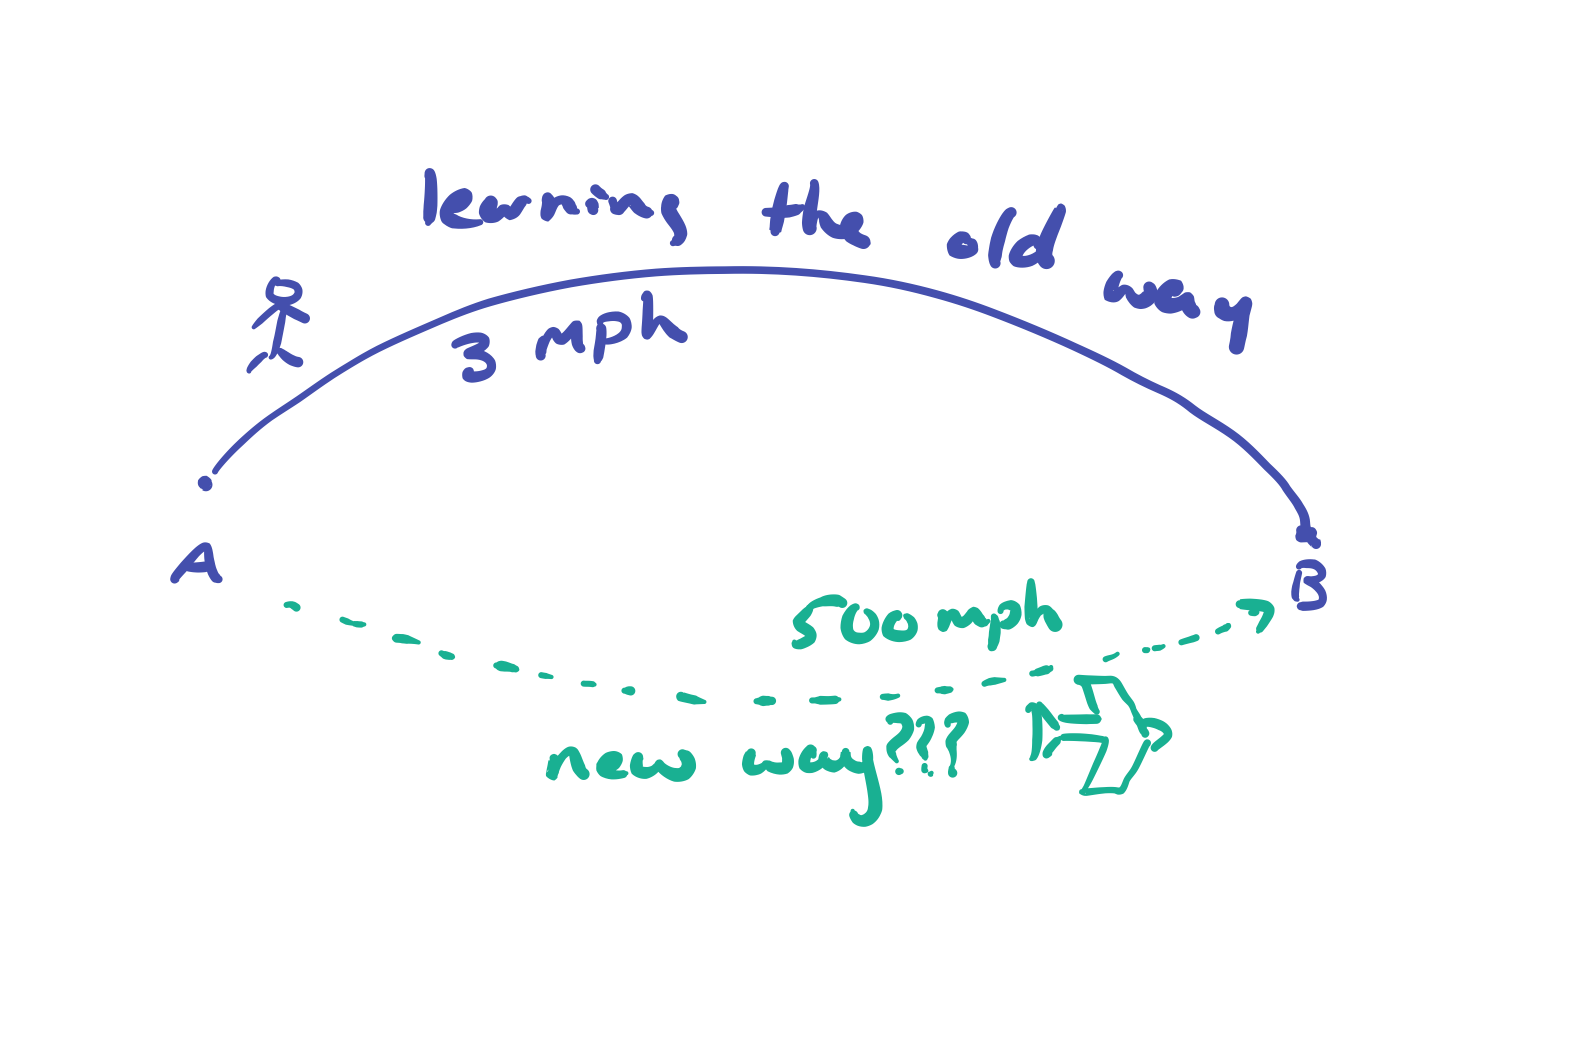 learning the old way
3 mph
A
B
500 mph
new way???